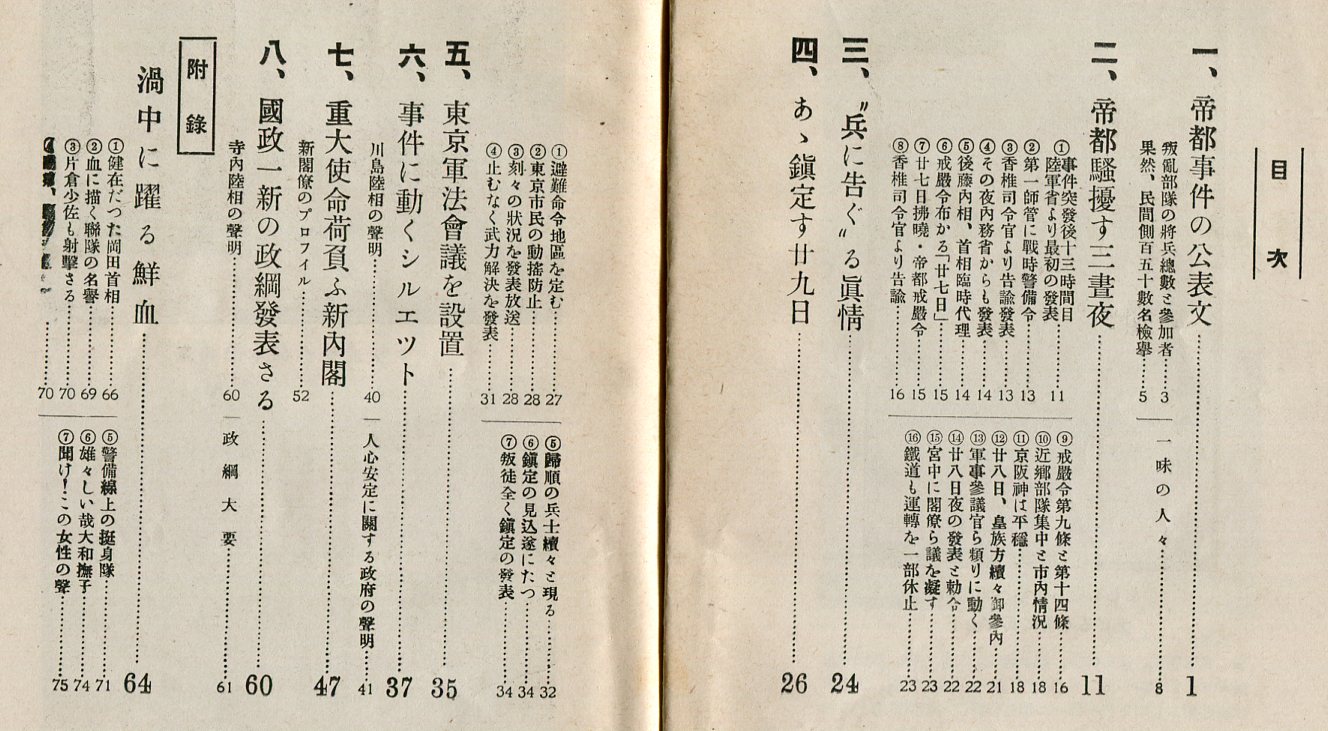 目次
一、帝都事件の公表文……1
叛亂部隊の將兵總數と參加者……3
果然、民間側百五十數名檢擧……5
一味の人々……8
二、帝都騷擾す三晝夜……11
①事件突發後十三時間目
陸軍省より最初の發表……11
②第一師管に戰時警備令……13
③香椎司令官より告諭發表……13
④その夜內務省からも發表……14
⑤後藤內相、首相臨時代理……14
⑥戒嚴令布かる「廿七日」……15
⑦廿七日拂曉・帝都戒嚴令……15
⑧香椎司令官より吿諭……16
⑨戒嚴令第九條と第十四條……16
⑩近鄕部隊集中と市內情況……18
⑪京阪神は平穩……18
⑫廿八日、皇族方續々御參內……21
⑬軍事參議官ら頻りに動く……22
⑭廿八日夜の發表と勅令……22
⑮宮中に閣僚ら議を凝す……23
⑯鐵道も運轉を一部休止……23
三、〝兵に告ぐ〟る眞情……24
四、あゝ鎭定す廿九日……26
①避難命令地區を定む……27
②東京市民の動搖防止……28
③刻々の狀況を發表放送……28
④止むなく武力解決を發表……31
⑤歸順の兵士續々と現る……32
⑥鎭定の見込遂にたつ……34
⑦叛徒全く鎭定の發表……34
五、東京軍法會議を設置……35
六、事件に動くシルエツト……37
川島陸相の聲明……40
人心安定に關する政府の聲明……41
七、重大使命荷負ふ新內閣……47
新閣僚のプロフイル……52
八、國政一新の政綱發表さる……60
寺內陸相の聲明……60
政綱大要……61
附錄
渦中に躍る鮮血……64
①健在だつた岡田首相……66
②血に描く聯隊の名譽……69
③片倉少佐も射擊さる……70
……70
⑤警備線上の挺身隊……71
⑥雄々しい哉大和撫子……74
⑦聞け!この女性の聲……75